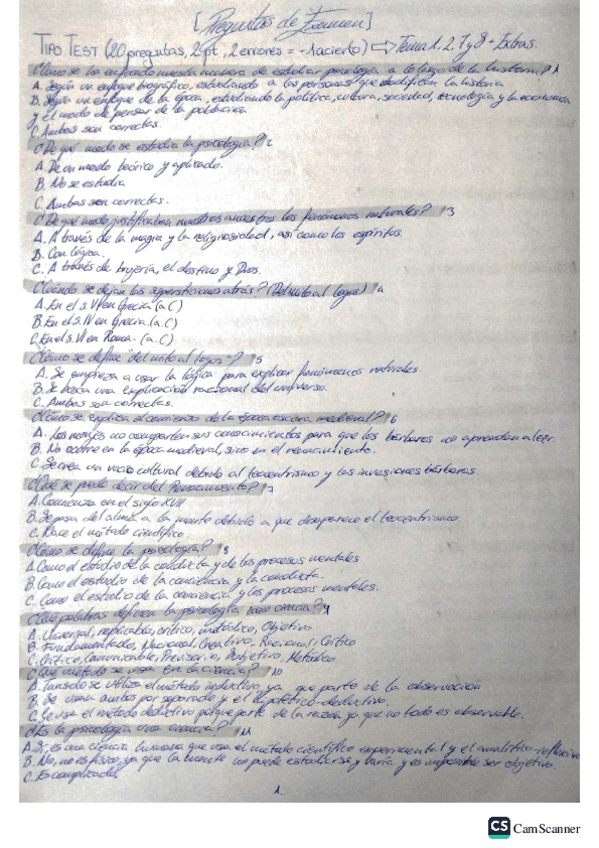 [Preguntas de Examen]
TIPO TEST (20 preguntas, 2pt, 2 errores = -1 acierto) ⇒ Tema 1, 2, 7 y 8 + Extras.
¿Cómo se ha enfocado nuestra manera de estudiar psicología a lo largo de la historia? 1
A. Según un enfoque biográfico, estudiando a las personas que modifican la historia
B. Según un enfoque de la época, estudiando la política, cultura, sociedad, tecnología y la economía
y el modo de pensar de la población
C. Ambas son correctas.
¿De qué modo se estudia la psicología? 2
A. De un modo teórico y aplicado.
B. No se estudia
C. Ambas son correctas.
¿De qué modo justificaban nuestros ancestros los fenómenos naturales? 3
A. A través de la magia y la religiosidad, así como los espíritus.
B. Con lógica.
C. A través de brujería, el destino y Dios.
¿Cuándo se dejan las supersticiones atrás? (Del mito al logos) 4
A. En el s. VI en Grecia (a.C)
B. En el s. IV en Grecia (a.C)
C. En el s. VI en Roma. (a.C)
¿Cómo se define "del mito al logos"? 5
A. Se empieza a usar la lógica para explicar fenómenos naturales.
B. Se busca una explicación racional del universo.
C. Ambas son correctas.
¿Cómo se explica el comienzo de la época oscura, medieval? 6
A. Los monjes no comparten sus conocimientos para que los bárbaros no aprendan a leer.
B. No ocurre en la época medieval, sino en el renacimiento.
C. Se crea un vacío cultural debido al teocentrismo y las invasiones bárbaras.
¿Qué se puede decir del Renacimiento? 7
A. Comienza en el siglo XVII
B. Se pasa del alma a la mente debido a que desaparece el teocentrismo
C. Nace el método científico
¿Cómo se define la psicología? 8
A. Como el estudio de la conducta y de los procesos mentales
B. Como el estudio de la conciencia y la conducta.
C. Como el estudio de la conciencia y los procesos mentales.
¿Qué palabras definen la psicología como ciencia? 9
A. Universal, replicable, crítico, metódico, Objetivo
B. Fundamentado, Nacional, Creativo, Racional, Crítico
C. Crítico, Comunicable, Provisorio, Subjetivo, Metódico
¿Qué método se usa en la ciencia? 10
A. Tan solo se utiliza el método inductivo ya que parte de la observación
B. Se usan ambos por separado y el hipotético-deductivo.
C. Se usa el método deductivo porque parte de la razón ya que no todo es observable.
¿Es la psicología una ciencia? 11
A. Sí, es una ciencia humana que usa el método científico experimental y el analítico-reflexivo
B. No, no es físico, ya que la mente no puede estudiarse y varía y es imposible ser objetivo.
C. Es complicado.
1.
CS CamScanner